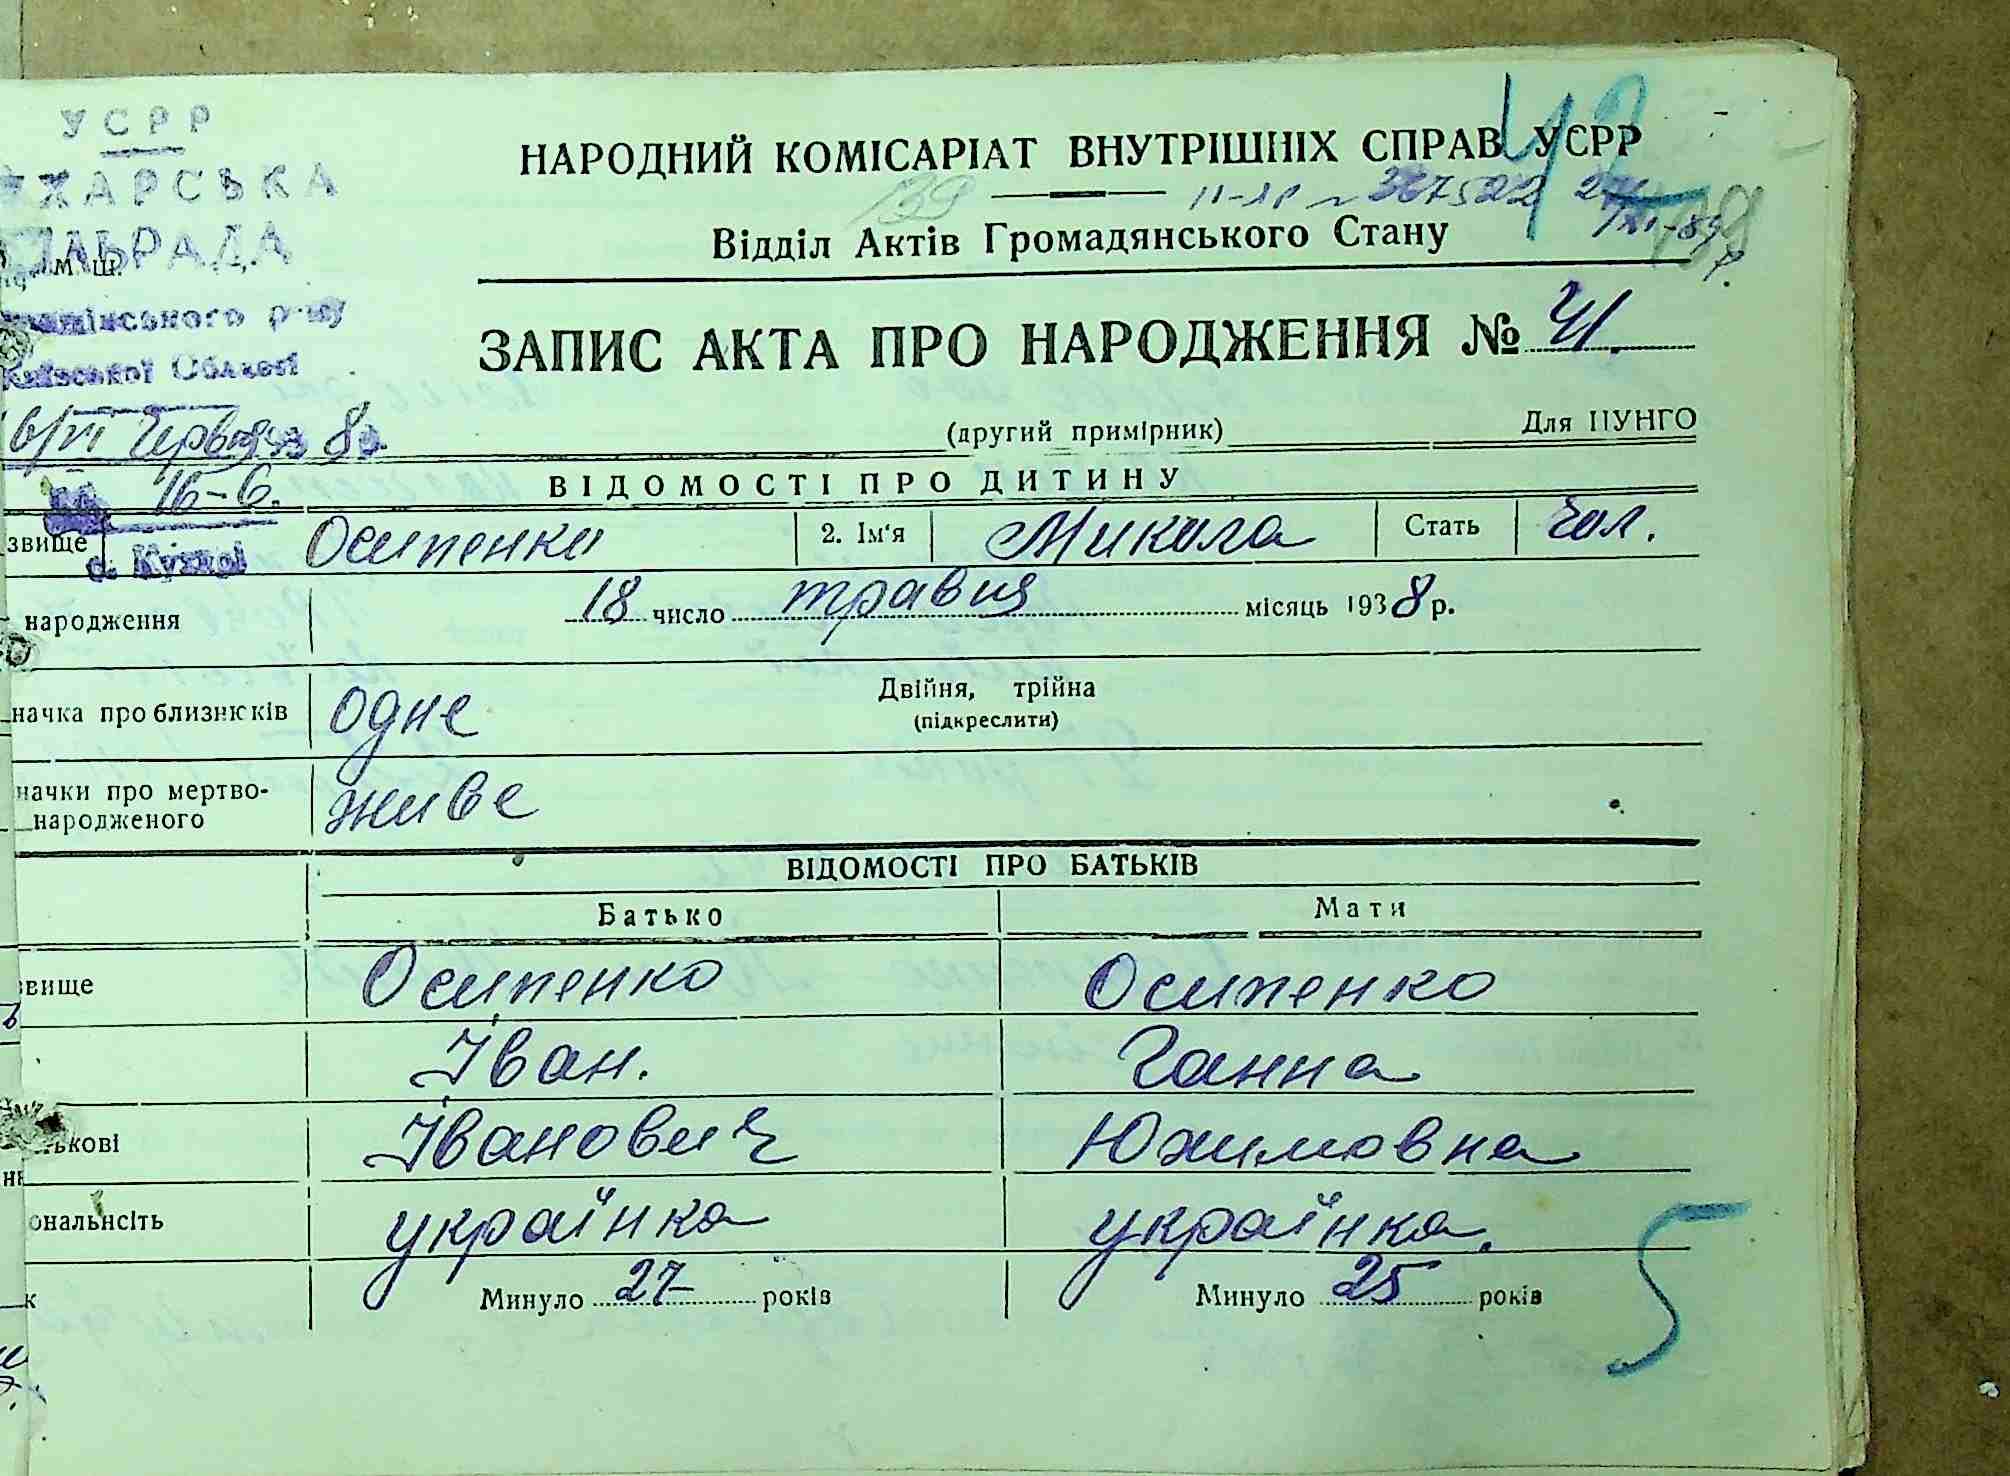 УСРР
ХАРСЬКА
ЛЬРАДА
м. ш.
району
Київської Області
6/VI Червня 8 р.
16-6.
с. Кухарі
НАРОДНИЙ КОМІСАРІАТ ВНУТРІШНІХ СПРАВ УСРР
42
139
II-ЯР № 387522
XI-89 р.
Відділ Актів Громадянського Стану
ЗАПИС АКТА ПРО НАРОДЖЕННЯ № 41.
(другий примірник)
Для ЦУНГО
ВІДОМОСТІ ПРО ДИТИНУ
звище Осипенко 2. Ім'я Микола Стать Чол.
народження 18 число травня місяць 1938 р.
начка про близнюків одне Двійня, трійна
(підкреслити)
начки про мертво-
народженого живе
ВІДОМОСТІ ПРО БАТЬКІВ
Батько Мати
звище Осипенко Осипенко
Іван. Ганна
ькові Іванович Юхимовна
ональнсіть українка українка.
к Минуло 27 років Минуло 25 років
5